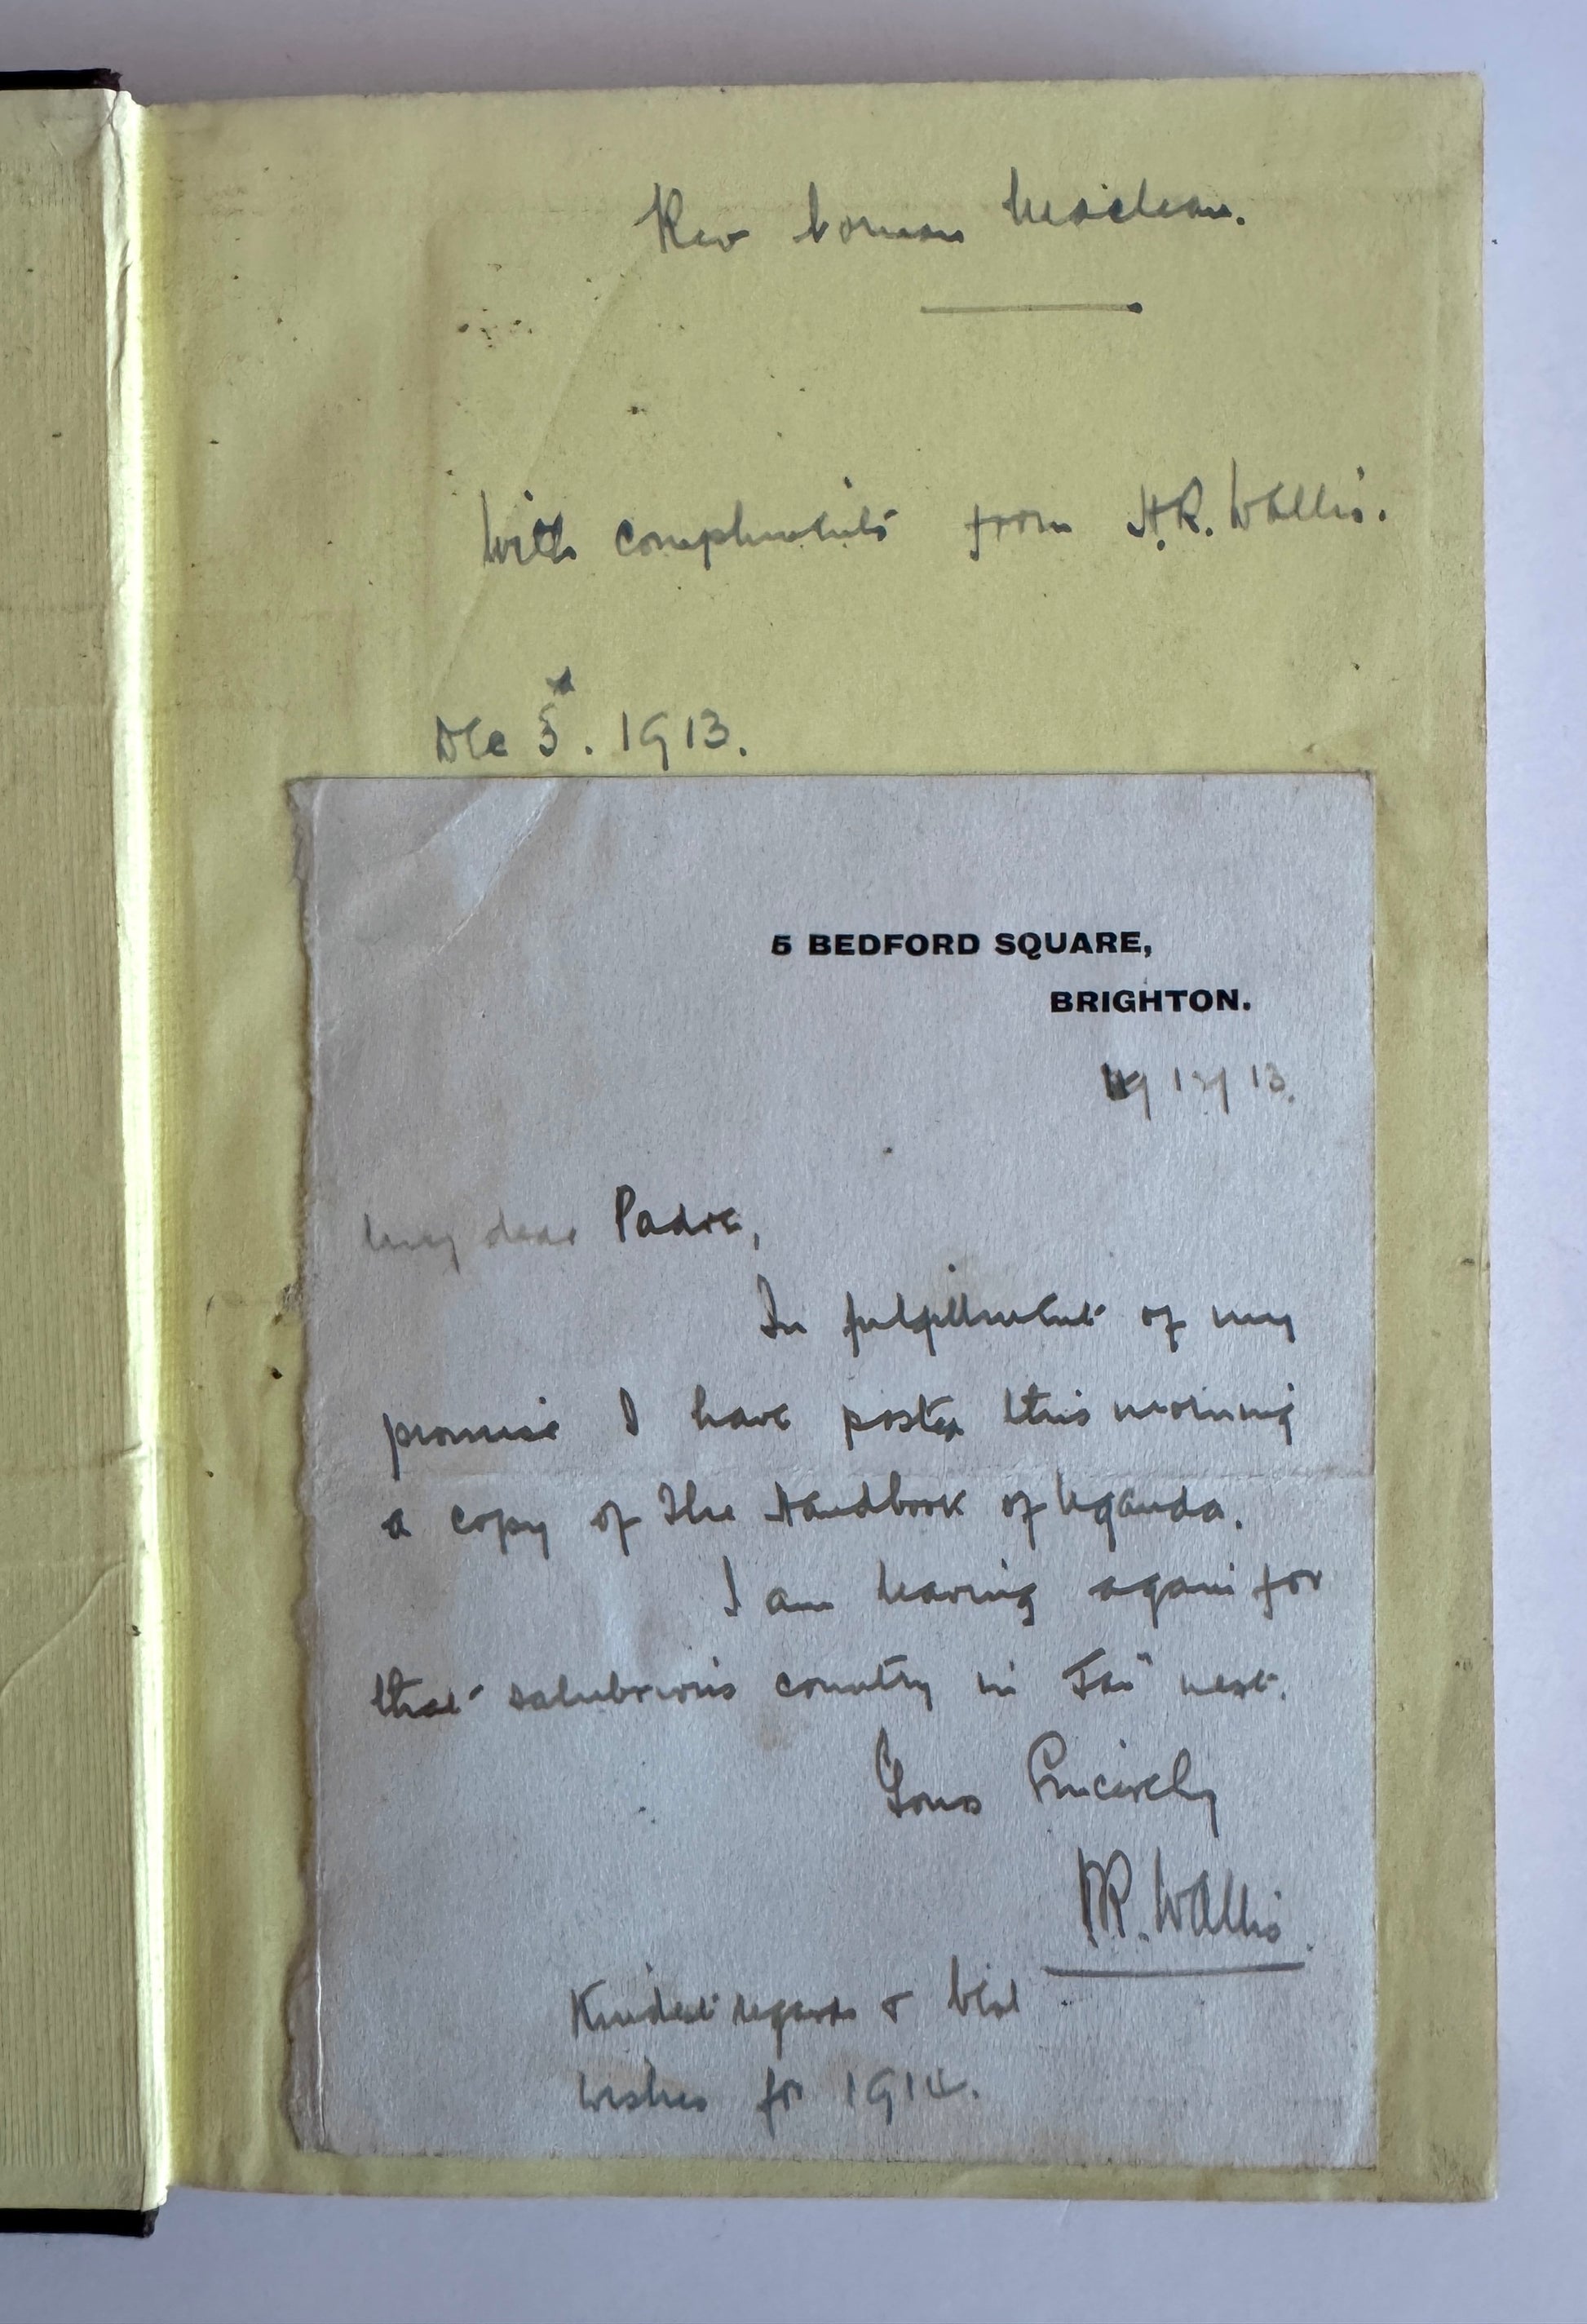 Rev Norman Maclean.
With compliments from H.R. Wallis.
Dec 5. 1913.
5 BEDFORD SQUARE,
BRIGHTON.
12/13.
My dear Padre,
In fulfillment of my
promise I have posted this morning
a copy of The Handbook of Uganda.
I am leaving again for
that salubrious country in Jan next.
Yours Sincerely
HR. Wallis.
Kindest regards & best
wishes for 1914.